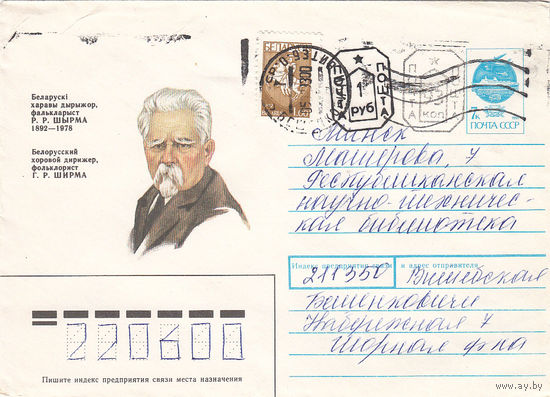 Беларускі
харавы дырыжор,
фалькларыст
Р. Р. ШЫРМА
1892—1978
Белорусский
хоровой дирижер,
фольклорист
Г. Р. ШИРМА
БЕЛАРУСЬ
ПОШТА
1
РУБ
КОП
7к
ПОЧТА СССР
Минск
Машерова, 7
Республиканская
научно-техничес-
кая библиотека
Индекс предприятия связи и адрес отправителя
211350 Витебская
Бешенковичи
Набережная 7
Шорная ф-ка
220600
Пишите индекс предприятия связи места назначения
www.ay.by